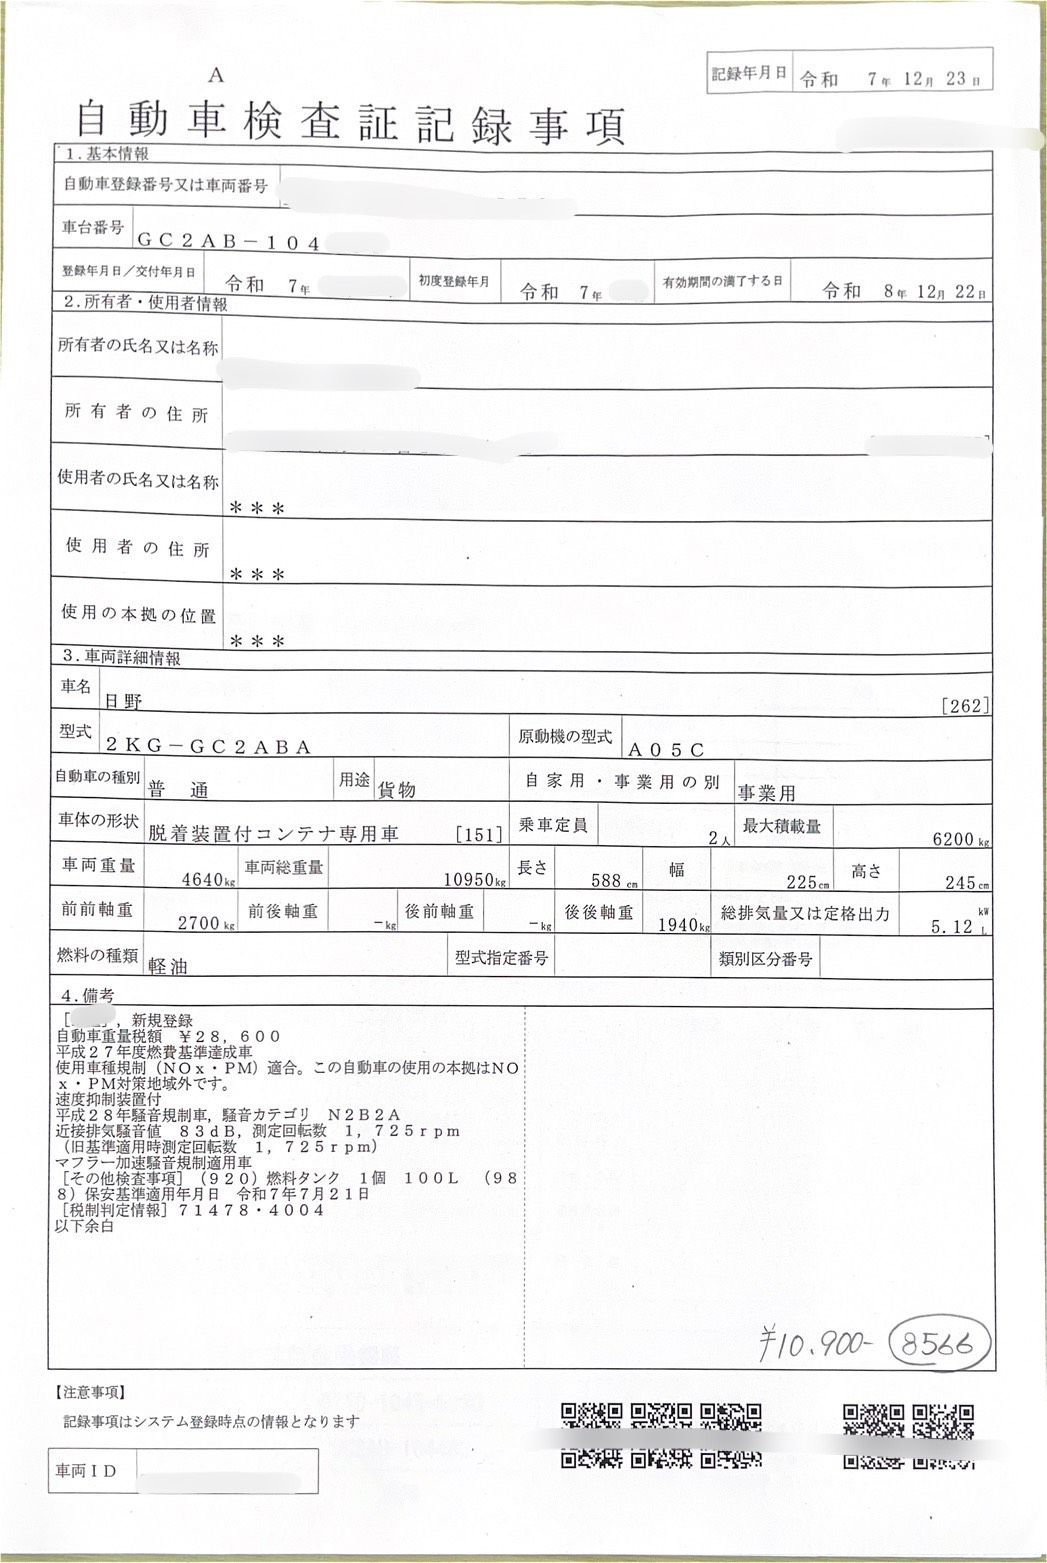 記録年月日 令和 7年 12月 23日
A
自動車検査証記録事項
1.基本情報
自動車登録番号又は車両番号
車台番号 GC2AB-104
登録年月日/交付年月日 令和 7年 初度登録年月 令和 7年 有効期間の満了する日 令和 8年 12月 22日
2.所有者・使用者情報
所有者の氏名又は名称
所有者の住所
使用者の氏名又は名称 ***
使用者の住所 ***
使用の本拠の位置 ***
3.車両詳細情報
車名 日野 [262]
型式 2KG-GC2ABA 原動機の型式 A05C
自動車の種別 普通 用途 貨物 自家用・事業用の別 事業用
車体の形状 脱着装置付コンテナ専用車 [151] 乗車定員 2人 最大積載量 6200kg
車両重量 4640kg 車両総重量 10950kg 長さ 588cm 幅 225cm 高さ 245cm
前前軸重 2700kg 前後軸重 -kg 後前軸重 -kg 後後軸重 1940kg 総排気量又は定格出力 5.12 kW L
燃料の種類 軽油 型式指定番号 類別区分番号
4.備考
[ ],新規登録
自動車重量税額 ¥28,600
平成27年度燃費基準達成車
使用車種規制(NOx・PM)適合。この自動車の使用の本拠はNO
x・PM対策地域外です。
速度抑制装置付
平成28年騒音規制車,騒音カテゴリ N2B2A
近接排気騒音値 83dB,測定回転数 1,725rpm
(旧基準適用時測定回転数 1,725rpm)
マフラー加速騒音規制適用車
[その他検査事項](920)燃料タンク 1個 100L (98
8)保安基準適用年月日 令和7年7月21日
[税制判定情報]71478・4004
以下余白
¥10.900- 8566
【注意事項】
記録事項はシステム登録時点の情報となります
車両ID